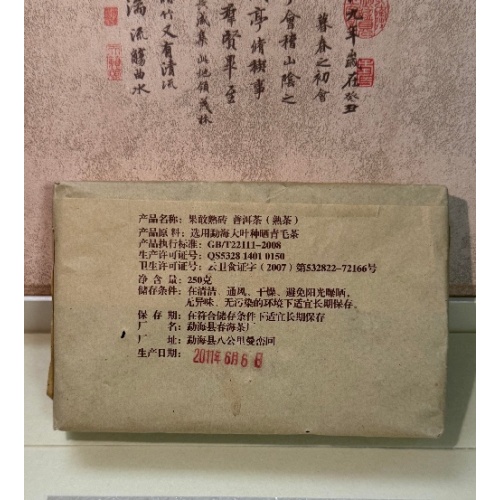 元年歲在癸丑
暮春之初會
會稽山陰之
亭脩稧事
羣賢畢至
長咸集此地
領茂林
竹又有清流
湍流觴曲水
产品名称：果敢熟砖 普洱茶（熟茶）
产品原料：选用勐海大叶种晒青毛茶
产品执行标准：GB/T22111-2008
生产许可证号：QS5328 1401 0150
卫生许可证号：云卫食证字（2007）第532822-72166号
净 含 量：250克
储存条件：在清洁、通风、干燥、避免阳光曝晒，
无异味、无污染的环境下适宜长期保存。
保 存 期：在符合储存条件下适宜长期保存
厂 名：勐海县春海茶厂
厂 址：勐海县八公里曼峦回
生产日期：2011年6月6日